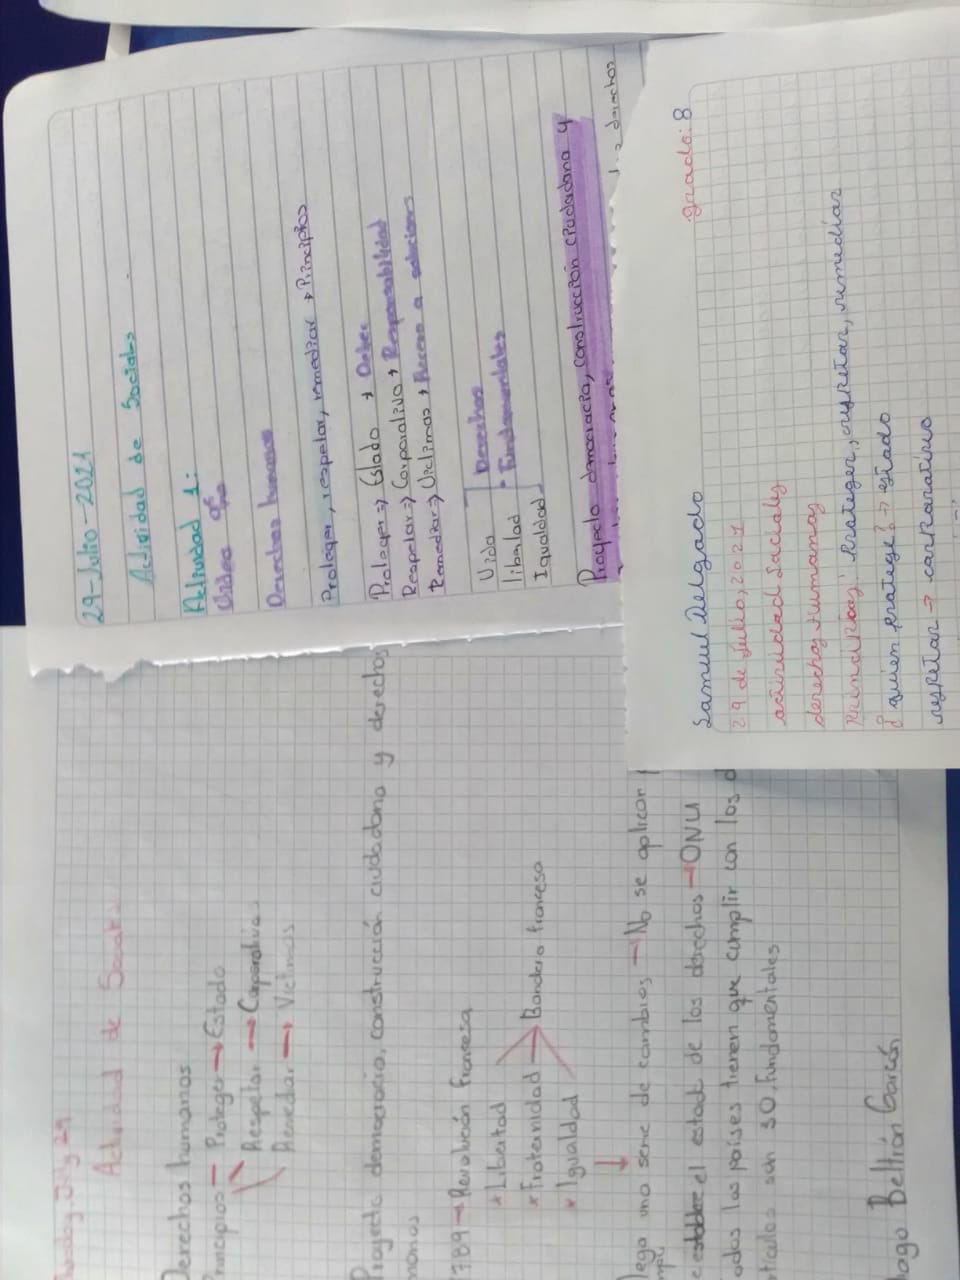 29-Julio-2021
Actividad de Sociales
Actividad 1:
Video 9°
Derechos humanos
Proteger, respetar, remediar → Principios
Proteger ⇒ Estado → Deber
Respetar ⇒ Corporativo → Responsabilidad
Remediar ⇒ Victimas → Acceso a soluciones
Vida
libertad
Igualdad
Derechos
Fundamentales
Proyecto democracia, construcción ciudadana y
derechos
Samuel Delgado
grado: 8
29 de julio, 2021
actividad sociales
derechos Humanos
Principios: proteger, respetar, remediar
¿quien protege? → estado
respetar → corporativo
July 29
Actividad de Social
Derechos humanos
Principios — Proteger → Estado
Respetar → Corporativa
Remedar → Victimas
Proyecto democracia, construcción ciudadana y derechos
manos
1789 → Revolución francesa
* Libertad
* Fraternidad → Bandera francesa
* Igualdad
llega una serie de cambios → No se aplican
e establece el estado de los derechos → ONU
odos los países tienen que cumplir con los d
tículos son 30 fundamentales
ago Beltrán Garcón